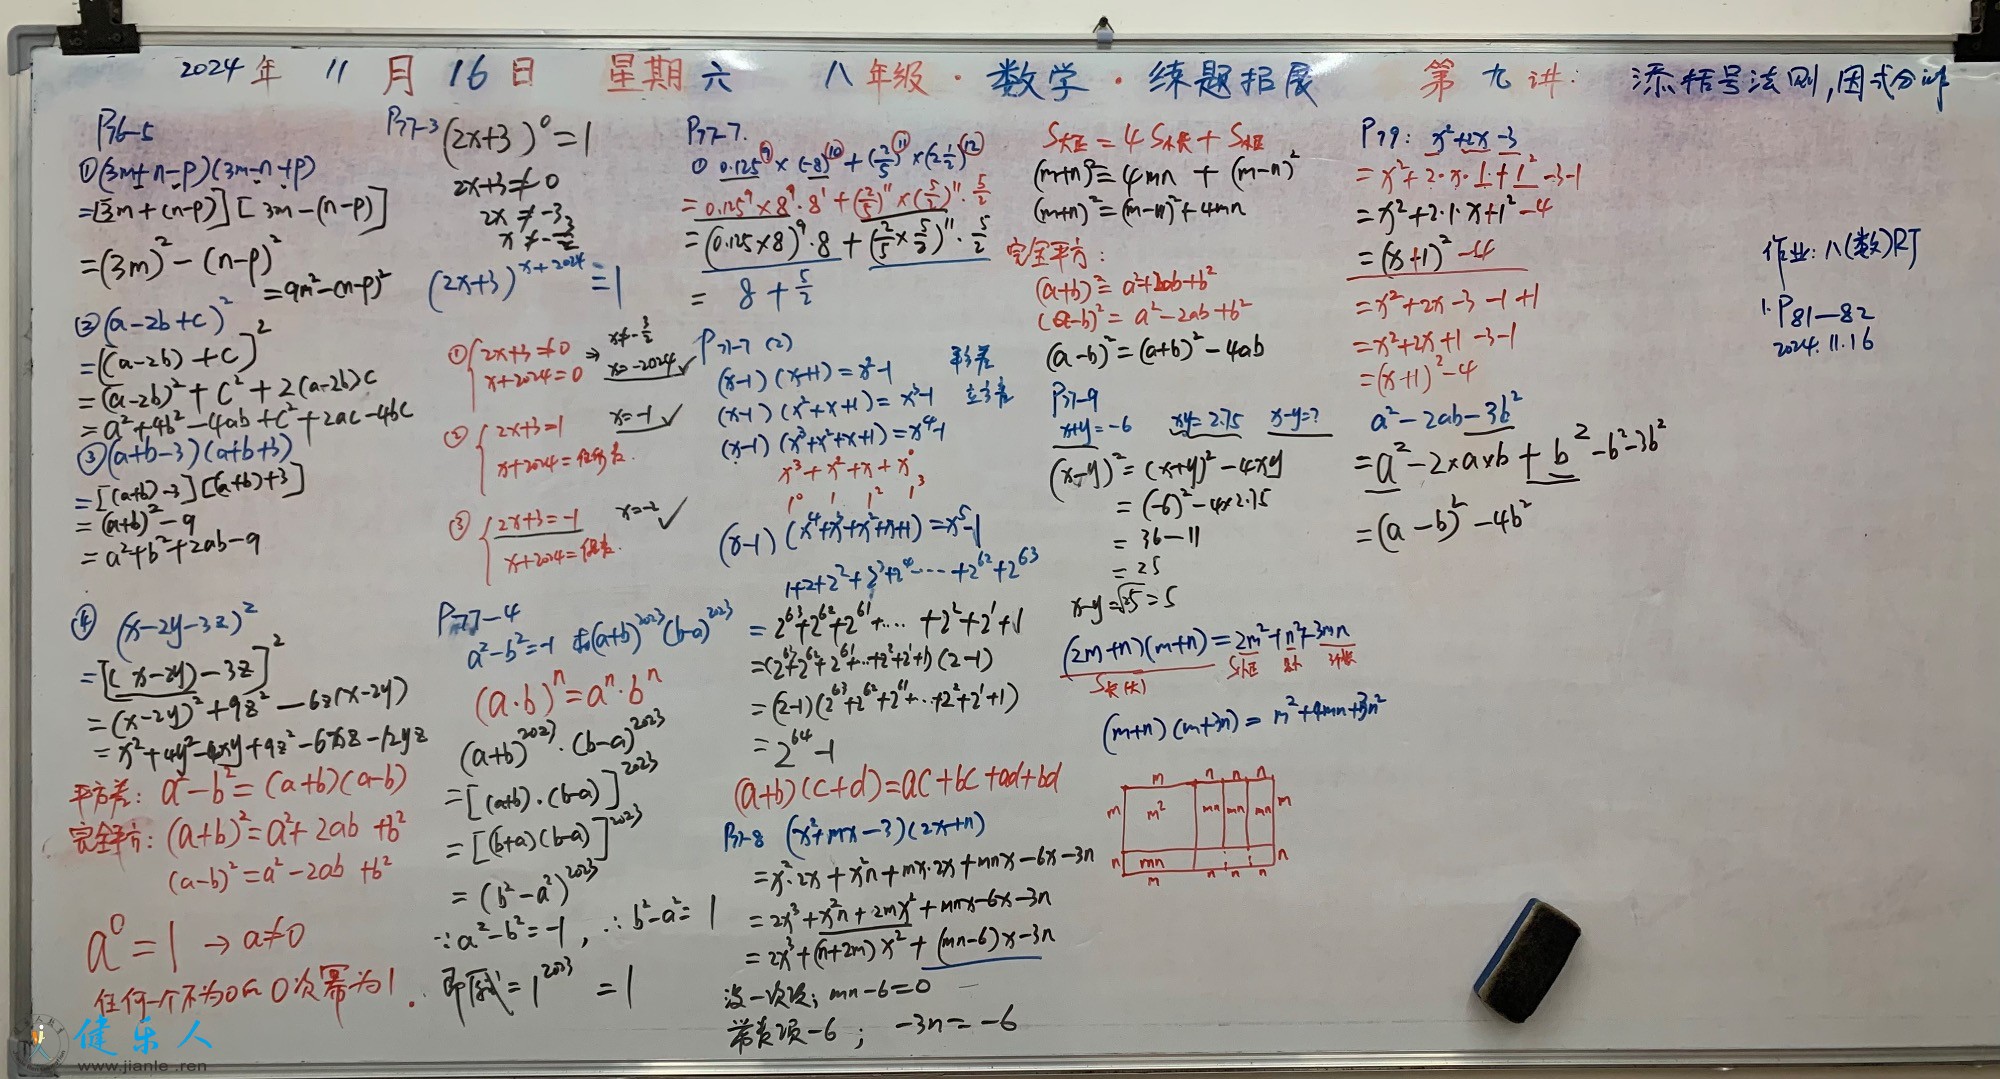 2024年 11月16日 星期六 八年级·数学·练题拓展 第九讲: 添括号法则,因式分解
P76-5
①(3m+n-p)(3m-n+p)
=[3m+(n-p)][3m-(n-p)]
=(3m)²-(n-p)²
=9m²-(n-p)²
②(a-2b+c)²
=[(a-2b)+c]²
=(a-2b)²+c²+2(a-2b)c
=a²+4b²-4ab+c²+2ac-4bc
③(a+b-3)(a+b+3)
=[(a+b)-3][(a+b)+3]
=(a+b)²-9
=a²+b²+2ab-9
④ (x-2y-3z)²
=[(x-2y)-3z]²
=(x-2y)²+9z²-6z(x-2y)
=x²+4y²-4xy+9z²-6xz-12yz
平方差: a²-b²=(a+b)(a-b)
完全平方: (a+b)²=a²+2ab+b²
(a-b)²=a²-2ab+b²
a⁰=1→a≠0
任何一个不为0的0次幂为1.
P77-3 (2x+3)⁰=1
2x+3≠0
2x≠-3
x≠-3/2
(2x+3)^(x+2024)=1
① {2x+3≠0 ⇒ x≠-3/2
x+2024=0 x=-2024✓
② {2x+3=1 x=-1✓
x+2024=任何数.
③ {2x+3=-1 x=-2✓
x+2024=偶数.
P77-4
a²-b²=-1 求(a+b)²⁰²³(b-a)²⁰²³
(a·b)ⁿ=aⁿ·bⁿ
(a+b)²⁰²³·(b-a)²⁰²³
=[(a+b)·(b-a)]²⁰²³
=[(b+a)(b-a)]²⁰²³
=(b²-a²)²⁰²³
∵a²-b²=-1, ∴b²-a²=1
即原式=1²⁰²³=1
P77-7.
① 0.125⁹×(-8)¹⁰+(2/5)¹¹×(2 1/2)¹²
=0.125⁹×8⁹·8¹+(2/5)¹¹×(5/2)¹¹·5/2
=(0.125×8)⁹·8+(2/5×5/2)¹¹·5/2
= 8+5/2
P77-7 (2)
(x-1)(x+1)=x²-1 平方差
(x-1)(x²+x+1)=x³-1 立方差
(x-1)(x³+x²+x+1)=x⁴-1
x³+x²+x+x⁰
1⁰ 1¹ 1² 1³
(x-1)(x⁴+x³+x²+x+1)=x⁵-1
1+2+2²+2³+2⁴+……+2⁶²+2⁶³
=2⁶³+2⁶²+2⁶¹+……+2²+2¹+1
=(2⁶³+2⁶²+2⁶¹+…+2²+2¹+1)(2-1)
=(2-1)(2⁶³+2⁶²+2⁶¹+…+2²+2¹+1)
=2⁶⁴-1
(a+b)(c+d)=ac+bc+ad+bd
P77-8 (x²+mx-3)(2x+n)
=x²·2x+x²n+mx·2x+mnx-6x-3n
=2x³+x²n+2mx²+mnx-6x-3n
=2x³+(n+2m)x²+(mn-6)x-3n
没一次项; mn-6=0
常数项-6; -3n=-6
S大正=4S小长+S小正
(m+n)²=4mn+(m-n)²
(m+n)²=(m-n)²+4mn
完全平方:
(a+b)²=a²+2ab+b²
(a-b)²=a²-2ab+b²
(a-b)²=(a+b)²-4ab
P77-9
x+y=-6 xy=2.75 x-y=?
(x-y)²=(x+y)²-4xy
=(-6)²-4×2.75
=36-11
=25
x-y=√25=5
(2m+n)(m+n)=2m²+n²+3mn
S长(大) S大正 S小 3小长
(m+n)(m+3n)=m²+4mn+3n²
m n n n
m m² mn mn mn m
n mn n
m n n n
P79: x²+2x-3
=x²+2·x·1+1²-3-1
=x²+2·1·x+1²-4
=(x+1)²-4
=x²+2x-3-1+1
=x²+2x+1-3-1
=(x+1)²-4
a²-2ab-3b²
=a²-2×a×b+b²-b²-3b²
=(a-b)²-4b²
作业: 八(数)RJ
1. P81-82
2024.11.16
健乐人
www.jianle.ren